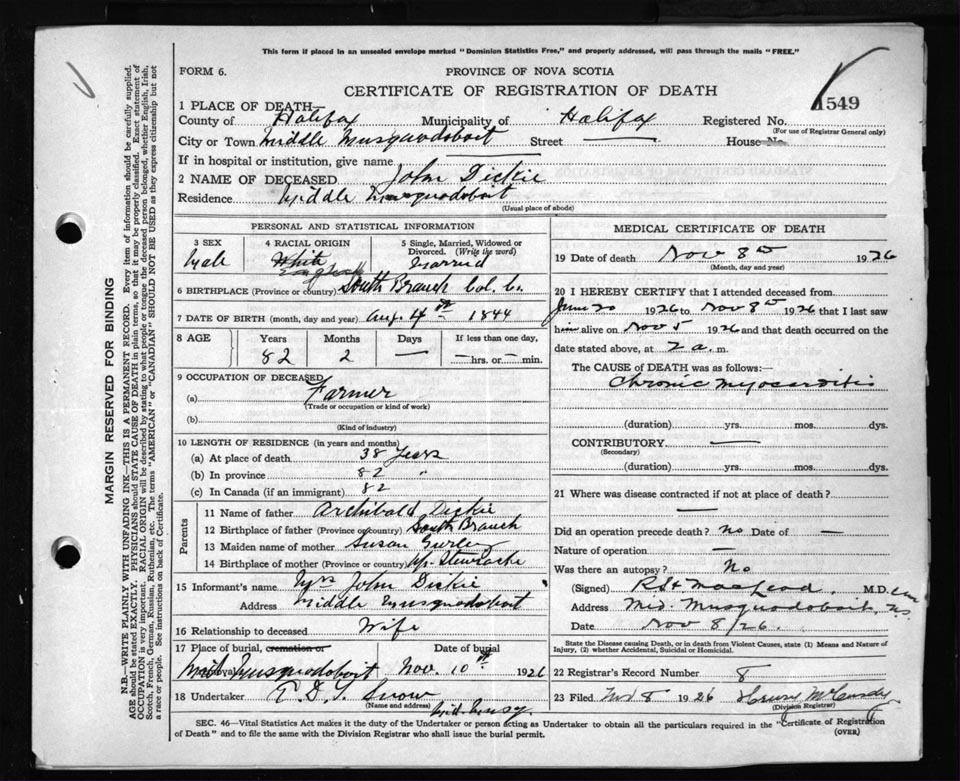 This form if placed in an unsealed envelope marked "Dominion Statistics Free," and properly addressed, will pass through the mails "FREE."
FORM 6.
PROVINCE OF NOVA SCOTIA
CERTIFICATE OF REGISTRATION OF DEATH
1549
1 PLACE OF DEATH—
County of Halifax Municipality of Halifax Registered No.
(For use of Registrar General only)
City or Town Middle Musquodoboit Street — House No.
If in hospital or institution, give name
2 NAME OF DECEASED John Dickie
Residence Middle Musquodoboit
(Usual place of abode)
PERSONAL AND STATISTICAL INFORMATION
3 SEX 4 RACIAL ORIGIN 5 Single, Married, Widowed or Divorced. (Write the word)
Male White English Married
6 BIRTHPLACE (Province or country) South Branch Col. Co.
7 DATE OF BIRTH (month, day and year) Aug. 4th 1844
8 AGE Years Months Days If less than one day,
82 2 — — hrs. or — min.
9 OCCUPATION OF DECEASED
(a) Farmer
(Trade or occupation or kind of work)
(b)
(Kind of industry)
10 LENGTH OF RESIDENCE (in years and months)
(a) At place of death 38 Years
(b) In province 82 "
(c) In Canada (if an immigrant) 82
Parents
11 Name of father Archibald Dickie
12 Birthplace of father (Province or country) South Branch
13 Maiden name of mother Susan
14 Birthplace of mother (Province or country) Up. Stewiacke
15 Informant's name Mrs John Dickie
Address Middle Musquodoboit
16 Relationship to deceased Wife
17 Place of burial, cremation or removal Date of burial
Mid. Musquodoboit Nov. 10th 1926
18 Undertaker Snow
(Name and address) Mid. Musq.
MEDICAL CERTIFICATE OF DEATH
19 Date of death Nov 8th 1926
(Month, day and year)
20 I HEREBY CERTIFY that I attended deceased from
June 20 1926 to Nov 8th 1926 that I last saw
him alive on Nov 5 1926 and that death occurred on
date stated above, at 2 a. m.
The CAUSE of DEATH was as follows:—
Chronic Myocarditis
(duration) yrs. mos. dys.
CONTRIBUTORY —
(Secondary)
(duration) yrs. mos. dys.
21 Where was disease contracted if not at place of death?
—
Did an operation precede death? No Date of —
Nature of operation —
Was there an autopsy? No
(Signed) MacLeod M.D.
Address Mid. Musquodoboit, NS
Date Nov 8/26.
State the Disease causing Death, or in death from Violent Causes, state (1) Means and Nature of Injury, (2) whether Accidental, Suicidal or Homicidal.
22 Registrar's Record Number 8
23 Filed Nov 8 1926
(Division Registrar)
SEC. 46—Vital Statistics Act makes it the duty of the Undertaker or person acting as Undertaker to obtain all the particulars required in the "Certificate of Registration
of Death" and to file the same with the Division Registrar who shall issue the burial permit.
(OVER)
MARGIN RESERVED FOR BINDING
N.B.—WRITE PLAINLY WITH UNFADING INK—THIS IS A PERMANENT RECORD. Every item of information should be carefully supplied.
AGE should be stated EXACTLY. PHYSICIANS should STATE CAUSE OF DEATH in plain terms, so that it may be properly classified. Exact statement of
OCCUPATION is very important. RACIAL ORIGIN will be described by stating to what people or tongue the deceased person belonged, whether English, Irish,
Scotch, French, German, Russian, Ruthenian, etc. The terms "AMERICAN" or "CANADIAN" SHOULD NOT BE USED as they express citizenship but not
a race or people. See instructions on back of Certificate.